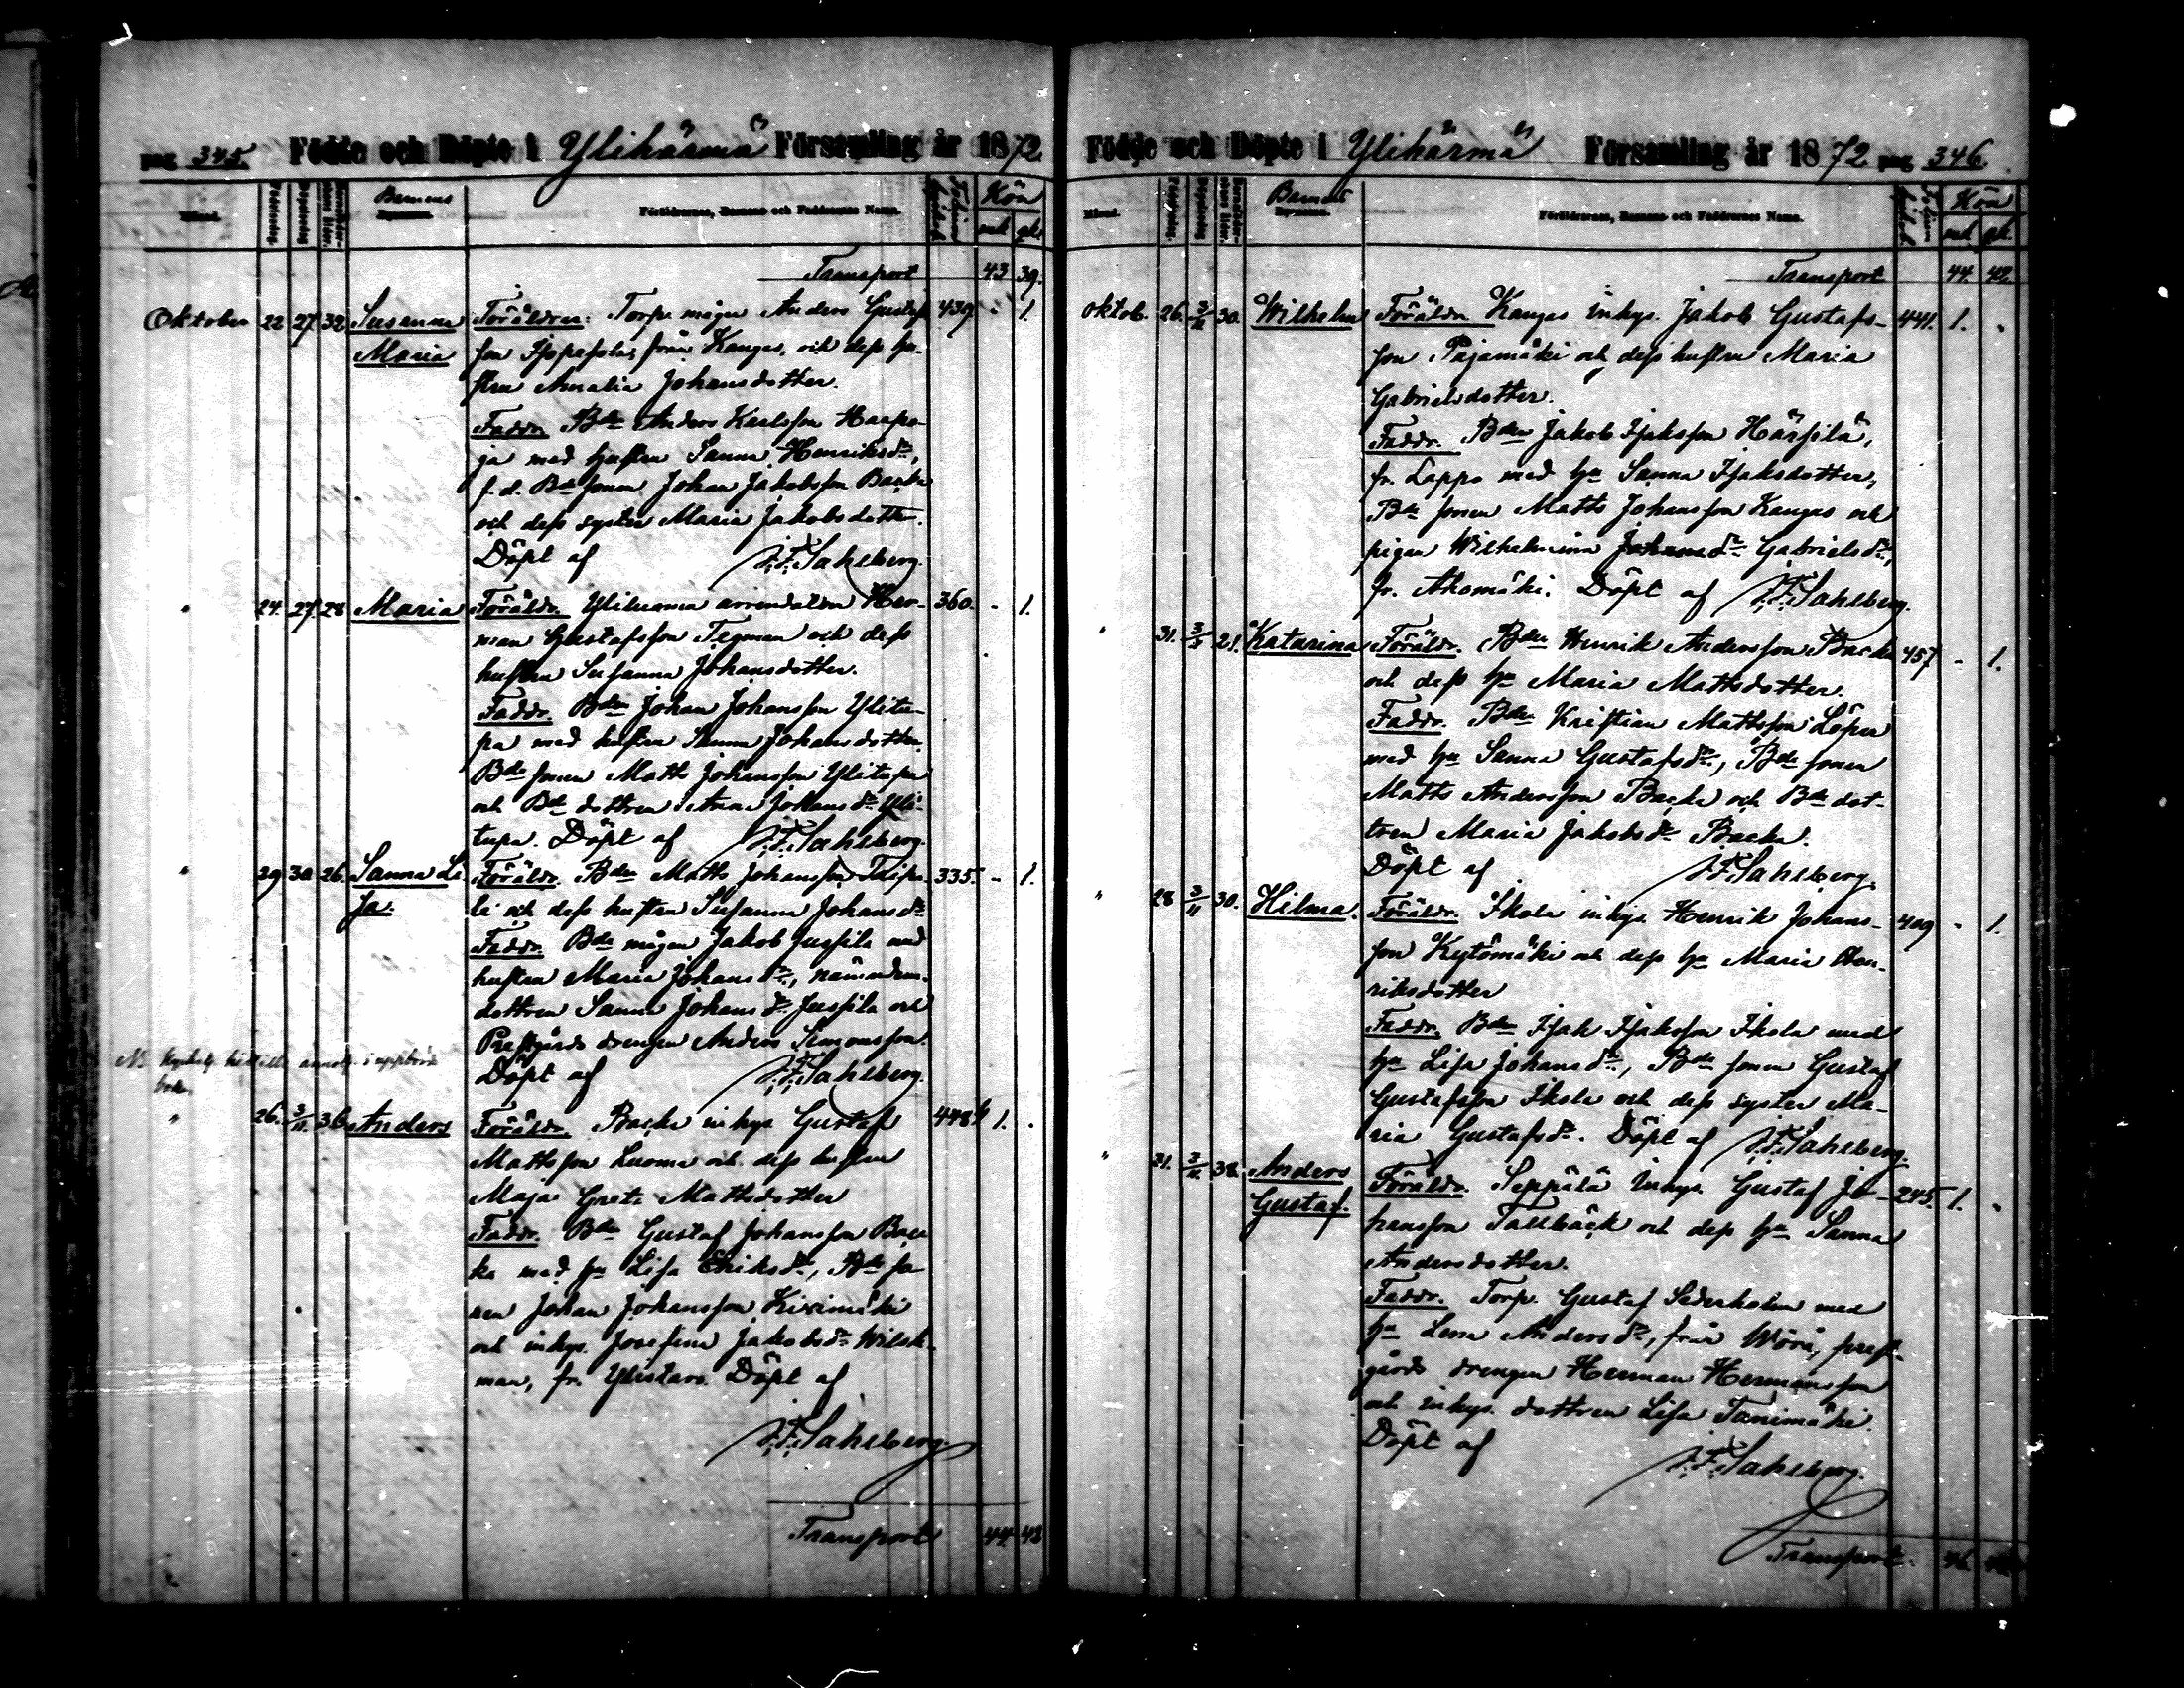 pag 345. Födde och Döpte i Ylihärmä Församling år 1872.
Månad. Födelsedag. Döpelsedag Barnens Kön
Föräldrarnes, Barnens och Faddrarnes Namn.
mk qk.
Transport 43 39.
Oktober 22 27 32 Susanna Föräldrar: Torp. mågen Anders Gustaf- 439 - 1.
Maria son från Kangas, och dess hu-
stru Amalia Johansdotter.
Faddr. Bdn Anders Karlsson Haapo-
ja med hustru Sanna Henriksdr,
f.d. Bde sonen Johan Jakobsson Backa
och dess syster Maria Jakobsdotter.
Döpt af J.F. Sahlberg.
" 24. 27. 28 Maria Föräldr. arrendatorn Her- 360. - 1.
man Gustafsson Tegman och dess
hustru Susanna Johansdotter.
Faddr. Bdn Johan Johansson Ylitu-
pa med hustru Sanna Johansdotter,
Bde sonen Matts Johansson Ylitupa
och Bde dottren Anna Johansdr Yli-
tupa. Döpt af J.F. Sahlberg.
" 29 30 26. Sanna Li- Föräldr. Bdn Matts Johansson Taipa- 335. - 1.
sa. le och dess hustru Susanna Johansdr
Faddr. Bde mågen Jakob Jussila med
hustru Maria Johansdr, nämndem.
dottren Sanna Johansdr Jussila och
Prestgårds drengen Anders Simonsson.
Döpt af J.F. Sahlberg.
" 26. 3/11. 36 Anders Föräldr. Backa inhys. Gustaf 448 1. .
Mattsson Luoma och dess hustru
Maja Greta Mattsdotter
Faddr. Bdn Gustaf Johansson Bac-
ka med hu Lisa Eriksdr, Bde so-
nen Johan Johansson Kivimäki
och inhys. Josefina Jakobsdr Wilsk-
man, fr. Ylistaro. Döpt af
J.F. Sahlberg.
Transport 44 42
Födde och Döpte i Ylihärmä Församling år 1872. pag 346.
Månad. Barnens Kön
Föräldrarnes, Barnens och Faddrarnes Namn.
mk qk.
Transport 44. 42.
Oktob. 26. 3/11 30. Wilhelm Föräldr. Kangas inhys. Jakob Gustafs- 441. 1. .
son Pajamäki och dess hustru Maria
Gabrielsdotter.
Faddr. Bdn Jakob Isaksson Härsilä,
fr. Lappo med hu Sanna Isaksdotter,
Bde sonen Matts Johansson Kangas och
pigan Wilhelmina Johansdr Gabrielsdr,
fr. Akomäki. Döpt af J.F. Sahlberg.
" 31. 3/11 21. Katarina Föräldr. Bdn Henrik Andersson Backa 457 - 1.
och dess hu Maria Mattsdotter.
Faddr. Bdn Kristian Mattsson Löper
med hu Sanna Gustafsdr, Bde sonen
Matts Andersson Backa och Bde dot-
tren Maria Jakobsdr Backa.
Döpt af J.F. Sahlberg.
" 28 3/11 30. Hilma. Föräldr. Ikola inhys. Henrik Johans- 409 - 1.
son Kytömäki och dess hu Maria Hen-
riksdotter
Faddr. Bdn Isak Isaksson Ikola med
hu Lisa Johansdr, Bde sonen Gustaf
Gustafsson Ikola och dess syster Ma-
ria Gustafsdr. Döpt af J.F. Sahlberg.
" 31. 3/11. 38. Anders Föräldr. Seppälä inhys. Gustaf Jo- 245. 1. .
Gustaf. hansson Tallbäck och dess hu Sanna
Andersdotter.
Faddr. Torp. Gustaf Sederholm med
hu Lena Andersdr, från Wörå, prest-
gårds drengen Herman Hermansson
och inhys. dottren Lisa Tanimäki.
Döpt af
J.F. Sahlberg.
Transport. 46.